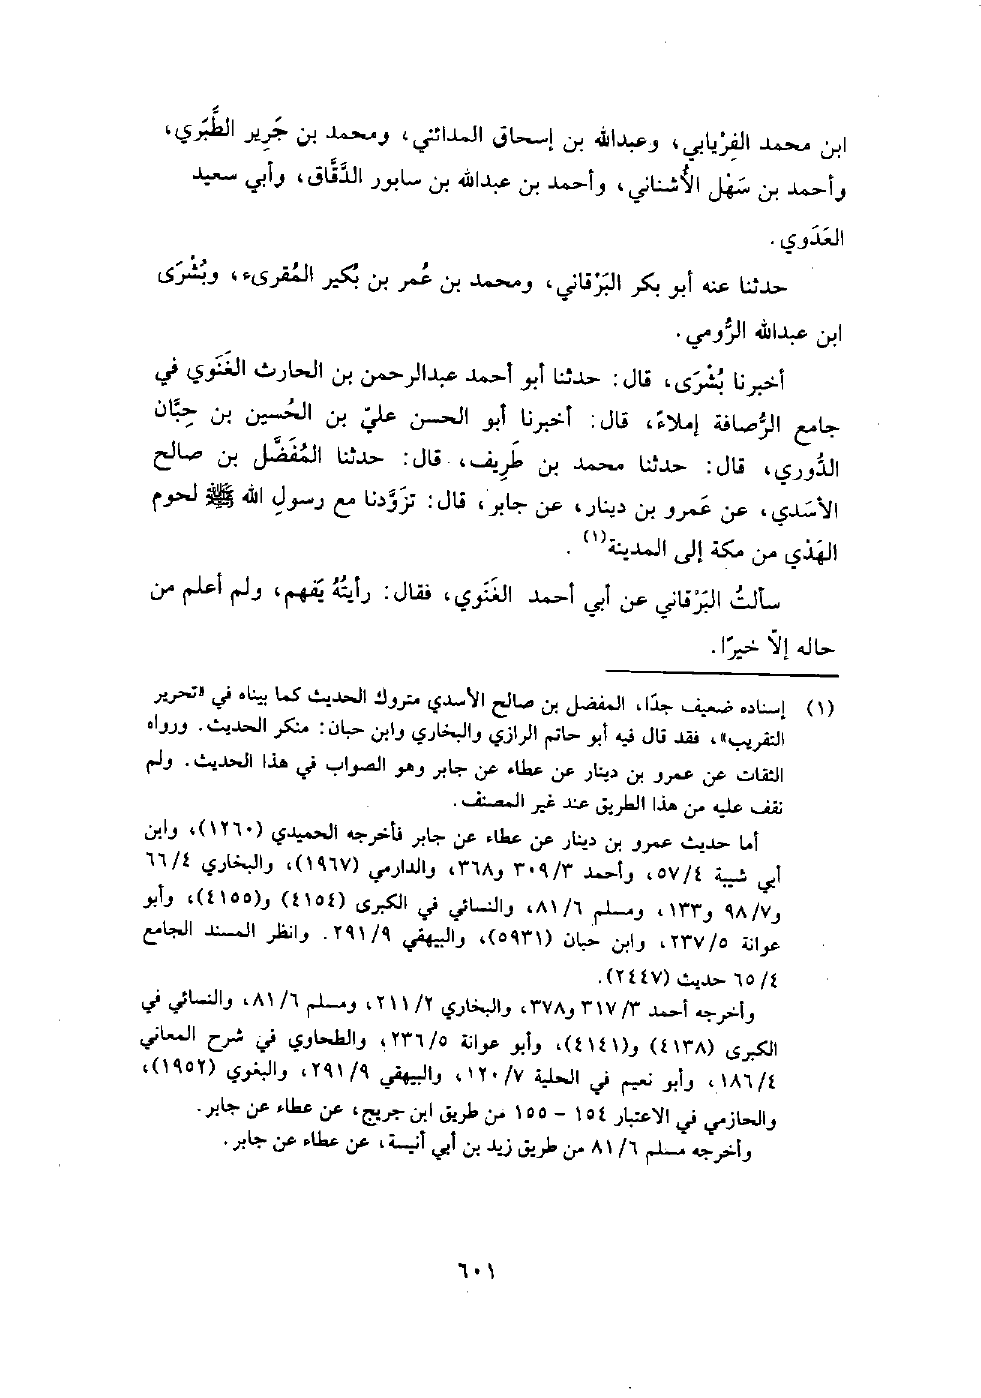 ابن محمد الفِرْيابي، وعبدالله بن إسحاق المدائني، ومحمد بن جَرِير الطَّبَري،
وأحمد بن سَهْل الأُشناني، وأحمد بن عبدالله بن سابور الدَّقَّاق، وأبي سعيد
العَدَوي.
حدثنا عنه أبو بكر البَرْقاني، ومحمد بن عُمر بن بُكير المُقرىء، وبُشْرَى
ابن عبدالله الرُّومي.
أخبرنا بُشْرَى، قال: حدثنا أبو أحمد عبدالرحمن بن الحارث الغَنَوي في
جامع الرُّصافة إملاءً، قال: أخبرنا أبو الحسن عليّ بن الحُسين بن حِبَّان
الدُّوري، قال: حدثنا محمد بن طَرِيف، قال: حدثنا المُفَضَّل بن صالح
الأسَدي، عن عَمرو بن دينار، عن جابر، قال: تزَوَّدنا مع رسولِ الله ﷺ لحوم
الهَدْي من مكة إلى المدينة(١) .
سألتُ البَرْقاني عن أبي أحمد الغَنَوي، فقال: رأيتُهُ يَفهم، ولم أعلم من
حاله إلاّ خيرًا.
(١) إسناده ضعيف جدًا، المفضل بن صالح الأسدي متروك الحديث كما بيناه في «تحرير
التقريب»، فقد قال فيه أبو حاتم الرازي والبخاري وابن حبان: منكر الحديث. ورواه
الثقات عن عمرو بن دينار عن عطاء عن جابر وهو الصواب في هذا الحديث. ولم
نقف عليه من هذا الطريق عند غير المصنف.
أما حديث عمرو بن دينار عن عطاء عن جابر فأخرجه الحميدي (١٢٦٠)، وابن
أبي شيبة ٥٧/٤، وأحمد ٣٠٩/٣ و٣٦٨، والدارمي (١٩٦٧)، والبخاري ٦٦/٤
و٩٨/٧ و١٣٣، ومسلم ٨١/٦، والنسائي في الكبرى (٤١٥٤) و(٤١٥٥)، وأبو
عوانة ٢٣٧/٥، وابن حبان (٥٩٣١)، والبيهقي ٢٩١/٩. وانظر المسند الجامع
٦٥/٤ حديث (٢٤٤٧).
وأخرجه أحمد ٣١٧/٣ و٣٧٨، والبخاري ٢١١/٢، ومسلم ٨١/٦، والنسائي في
الكبرى (٤١٣٨) و(٤١٤١)، وأبو عوانة ٢٣٦/٥، والطحاوي في شرح المعاني
١٨٦/٤، وأبو نعيم في الحلية ١٢٠/٧، والبيهقي ٢٩١/٩، والبغوي (١٩٥٢)،
والحازمي في الاعتبار ١٥٤ - ١٥٥ من طريق ابن جريج، عن عطاء عن جابر.
وأخرجه مسلم ٨١/٦ من طريق زيد بن أبي أنيسة، عن عطاء عن جابر.
٦٠١